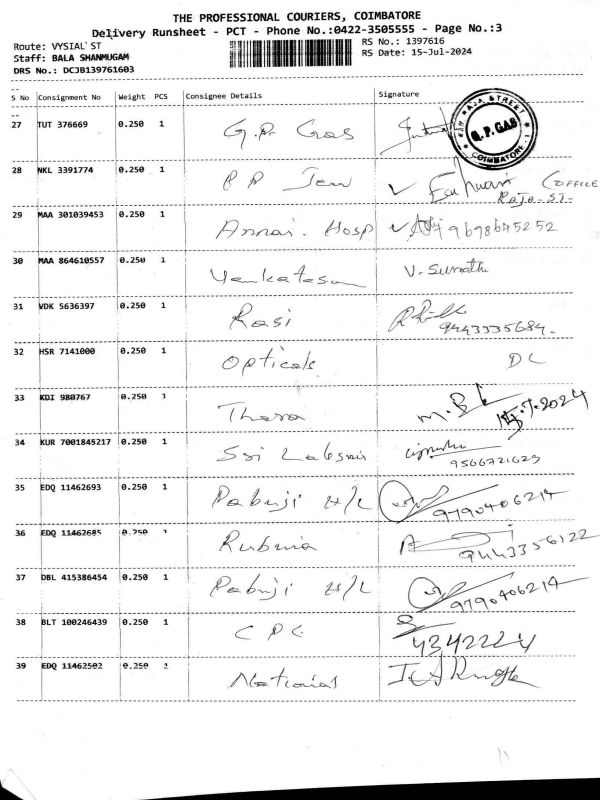 THE PROFESSIONAL COURIERS, COIMBATORE
Delivery Runsheet - PCT - Phone No.:0422-3505555 - Page No.:3
Route: VYSIAL ST
RS No.: 1397616
Staff: BALA SHANMUGAM
RS Date: 15-Jul-2024
DRS No.: DCJB139761603
S No Consignment No Weight PCS Consignee Details Signature
27 TUT 376669 0.250 1 G.P. Gas
RAJA STREET
G.P.GAS
COIMBATORE-1
28 NKL 3391774 0.250 1 P P Jew
OFFICE
RAJA-ST-
29 MAA 301039453 0.250 1 Annai. Hosp 9698645252
30 MAA 864610557 0.250 1 Venkatesan V. Sumathi
31 VDK 5636397 0.250 1 Rasi
9443335684.
32 HSR 7141000 0.250 1 Opticals DC
33 KDI 980767 0.250 1 Thara M. B
15.7.2024
34 KUR 7001845217 0.250 1 Sri
9566721629
35 EDQ 11462693 0.250 1 Pabuji H/L 9790406214
36 EDQ 11462685 0.250 1 Rubinia 9443356122
37 DBL 415386454 0.250 1 Pabuji H/L 9790406214
38 BLT 100246439 0.250 1 C P C
4342224
39 EDQ 11462502 0.250 1 National